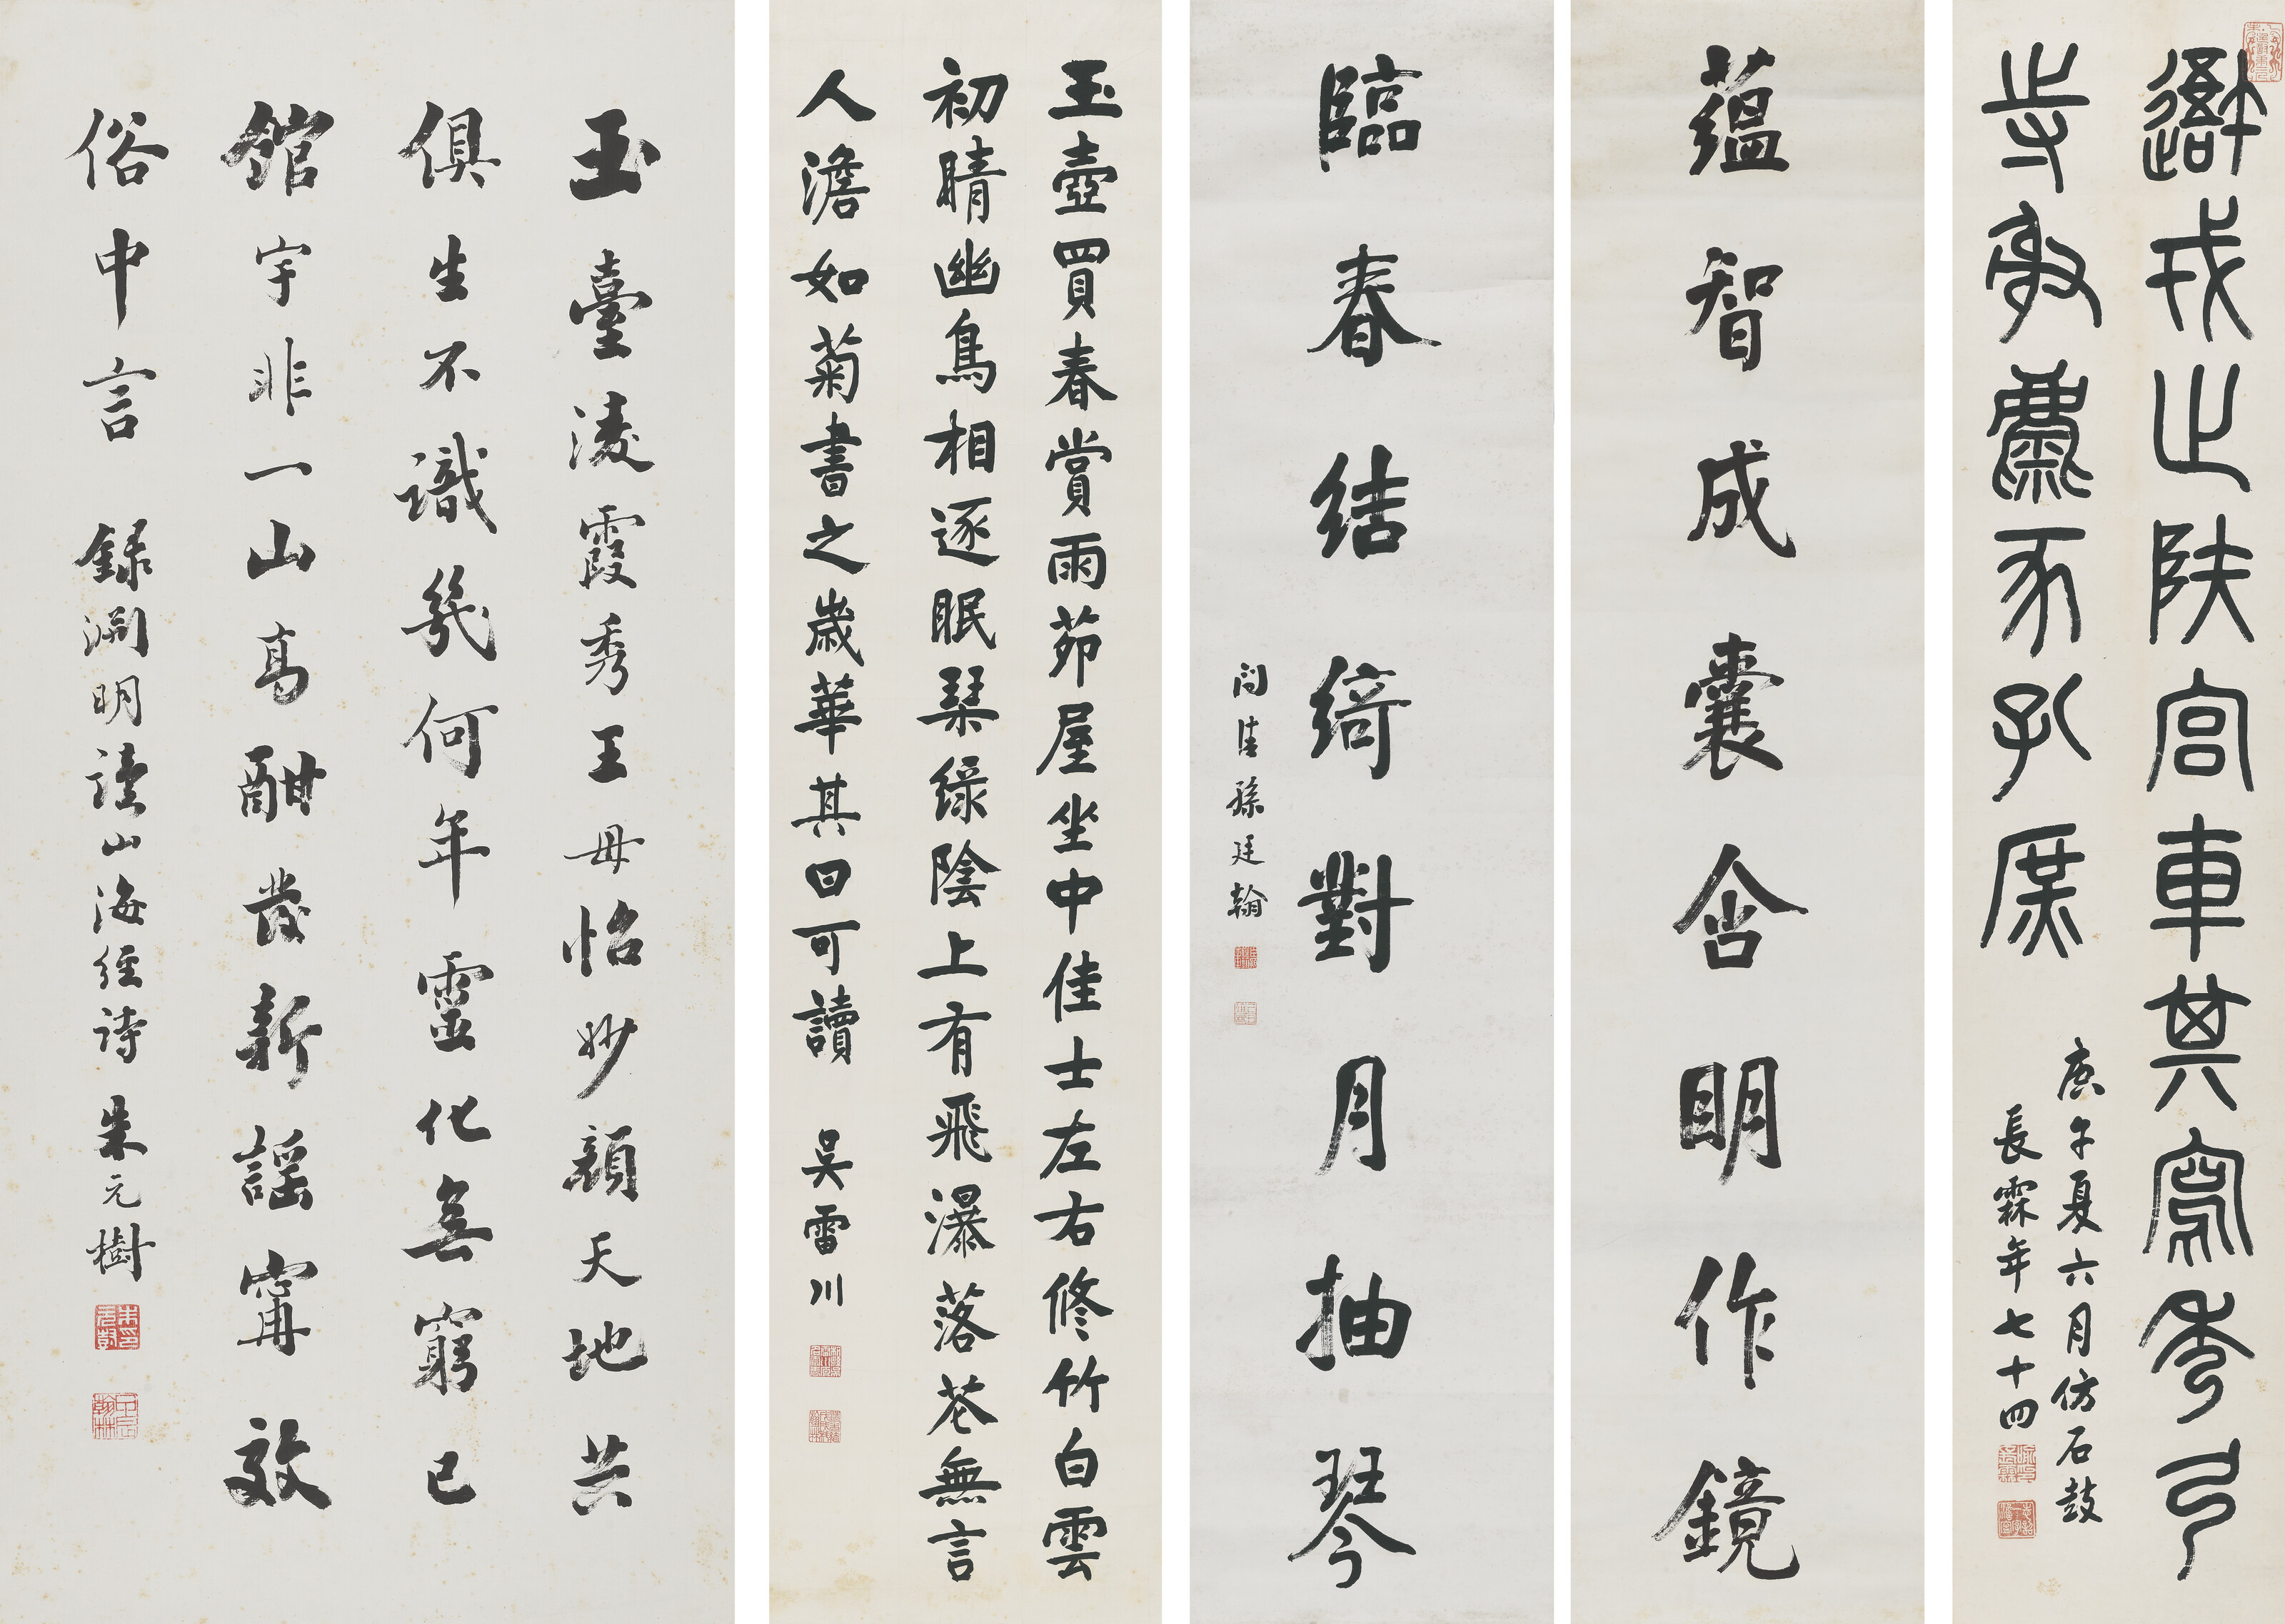 戎止陕宮車其寫秀弓
寺射麋豕孔庶
庚午夏六月仿石鼓
長霖年七十四
藴智成囊含明作鏡
臨春結綺對月抽琴
問清孫廷翰
玉壺買春賞雨茆屋坐中佳士左右修竹白雲
初晴幽鳥相逐眠琴綠陰上有飛瀑落花無言
人澹如菊書之歲華其曰可讀 吳雷川
玉臺淩霞秀王母怡妙顏天地共
俱生不識幾何年靈化無窮已
館宇非一山高酣發新謠寧效
俗中言 錄淵明讀山海經詩 朱元樹